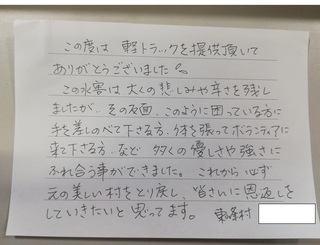 この度は 軽トラックを提供頂いて
ありがとうございました
この水害は 大くの悲しみや辛さを残し
ましたが、その反面、このように困っている方に
手を差しのべて下さる方、体を張ってボランティアに
来て下さる方、など 多くの優しさや強さに
ふれ合う事ができました。これから 必ず
元の美しい村をとり戻し、皆さんに恩返しを
していきたいと 思ってます。
村